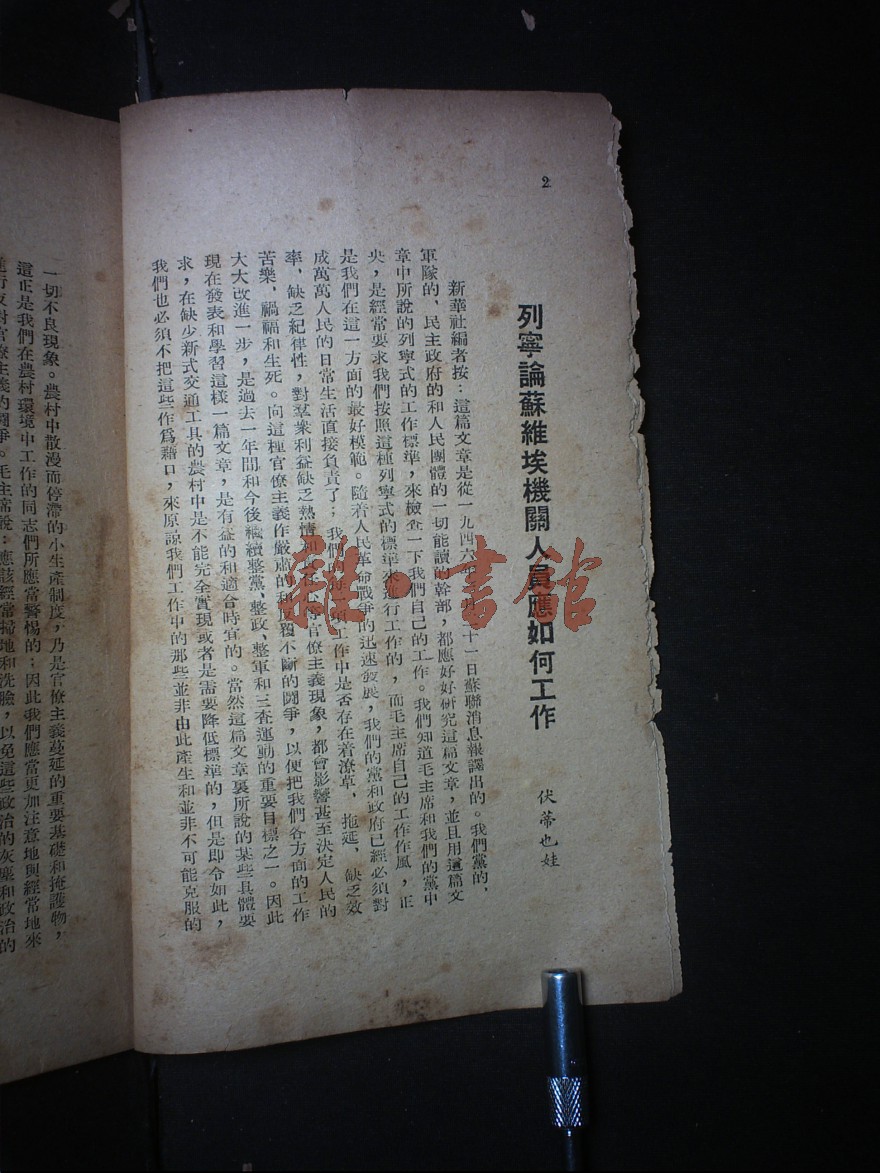 2
列寧論蘇維埃機關人員應如何工作
伏蒂也娃
新華社編者按：這篇文章是從一九四六年 月 十一日蘇聯消息報譯出的。我們黨的，
軍隊的，民主政府的和人民團體的一切能讀的幹部，都應好好研究這篇文章，並且用這篇文
章中所說的列寧式的工作標準，來檢查一下我們自己的工作。我們知道毛主席和我們的黨中
央，是經常要求我們按照這種列寧式的標準來進行工作的，而毛主席自己的工作作風，正
是我們在這一方面的最好模範。隨着人民革命戰爭的迅速發展，我們的黨和政府已經必須對
成萬萬人民的日常生活直接負責了；我們 每一項工作中是否存在着潦草，拖延，缺乏效
率，缺乏紀律性，對羣衆利益缺乏熱情和 等官僚主義現象，都會影響甚至決定人民的
苦樂，禍福和生死。向這種官僚主義作嚴肅的和反覆不斷的鬪爭，以便把我們各方面的工作
大大改進一步，是過去一年間和今後繼續整黨、整政、整軍和三查運動的重要目標之一。因此
現在發表和學習這樣一篇文章，是有益的和適合時宜的。當然這篇文章裏所說的某些具體要
求，在缺少新式交通工具的農村中是不能完全實現或者是需要降低標準的，但是即令如此，
我們也必須不把這些作爲藉口，來原諒我們工作中的那些並非由此產生和並非不可能克服的
一切不良現象。農村中散漫而停滯的小生產制度，乃是官僚主義蔓延的重要基礎和掩護物，
這正是我們在農村環境中工作的同志們所應當警惕的；因此我們應當更加注意地與經常地來
進行反對官僚主義的鬪爭。毛主席說：應該經常掃地和洗臉，以免這些政治的灰塵和政治的
雜·書館